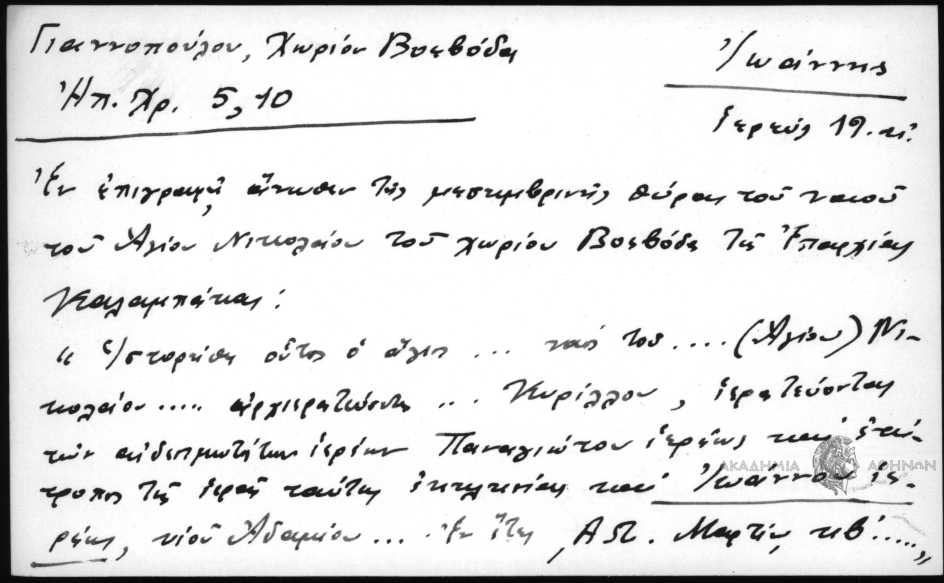 Γιαννοπούλου, Χωρίον Βοεβόδα
Ἠπ. Χρ. 5, 10
Ἰωάννης
ἱερεύς 19. αἰ.
Ἐν ἐπιγραφῇ ἄνωθεν τῆς μεσημβρινῆς θύρας τοῦ ναοῦ
τοῦ Ἁγίου Νικολάου τοῦ χωρίου Βοεβόδα τῆς Ἐπαρχίας
Καλαμπάκας:
" Ἱστορίθη οὗτος ὁ ἅγιος ... ναός του .... (Ἁγίου) Νι-
κολάου ..... ἀρχιερατεύοντος ... Κυρίλλου, ἱερατεύοντος
τῶν αἰδεσιμωτάτων ἱερέων Παναγιώτου ἱερέως καί ἐπί-
τροπος τῆς ἱερᾶς ταύτης ἐκκλησίας καί Ἰωάννου ἱε-
ρέως, υἱοῦ Ἀδαμίου ... Ἐν ἔτει Μαρτίου κβ΄ ..... "
ΑΚΑΔΗΜΙΑ ΑΘΗΝΩΝ